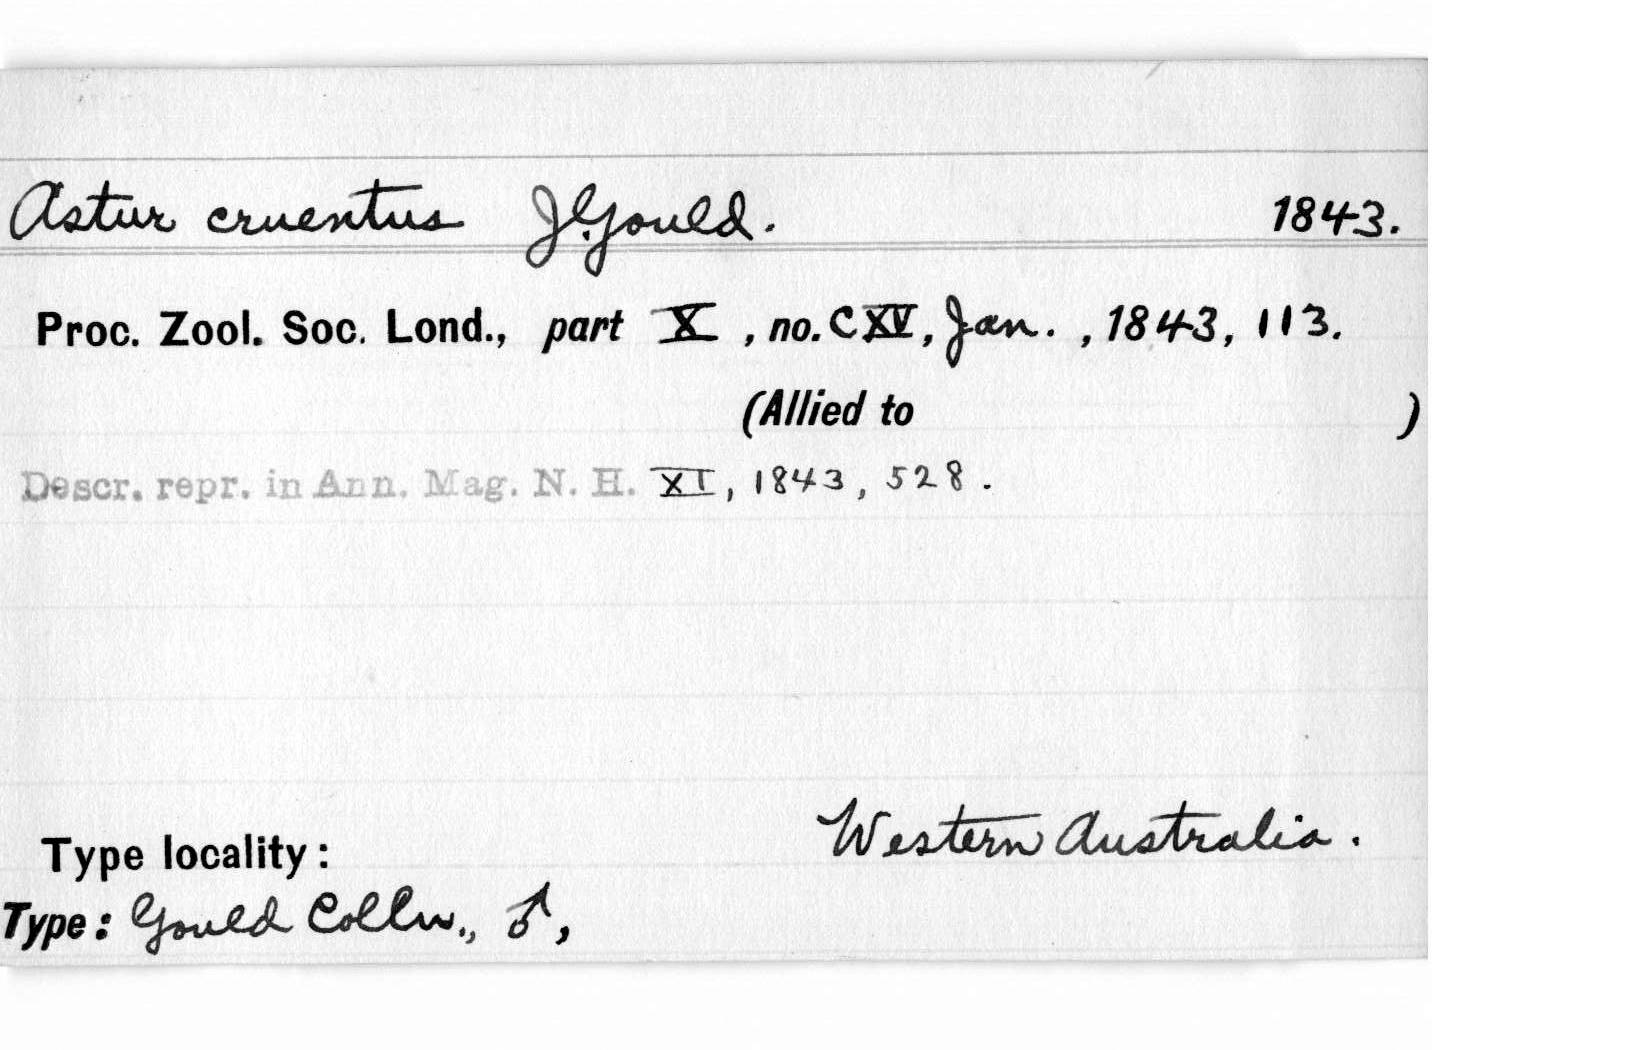 Astur cruentus J. Gould. 1843.
Proc. Zool. Soc. Lond., part X, no. CXV, Jan., 1843, 113.
(Allied to )
Descr. repr. in Ann. Mag. N. H. XI, 1843, 528.
Type locality: Western Australia.
Type: Gould Colln., ♂,